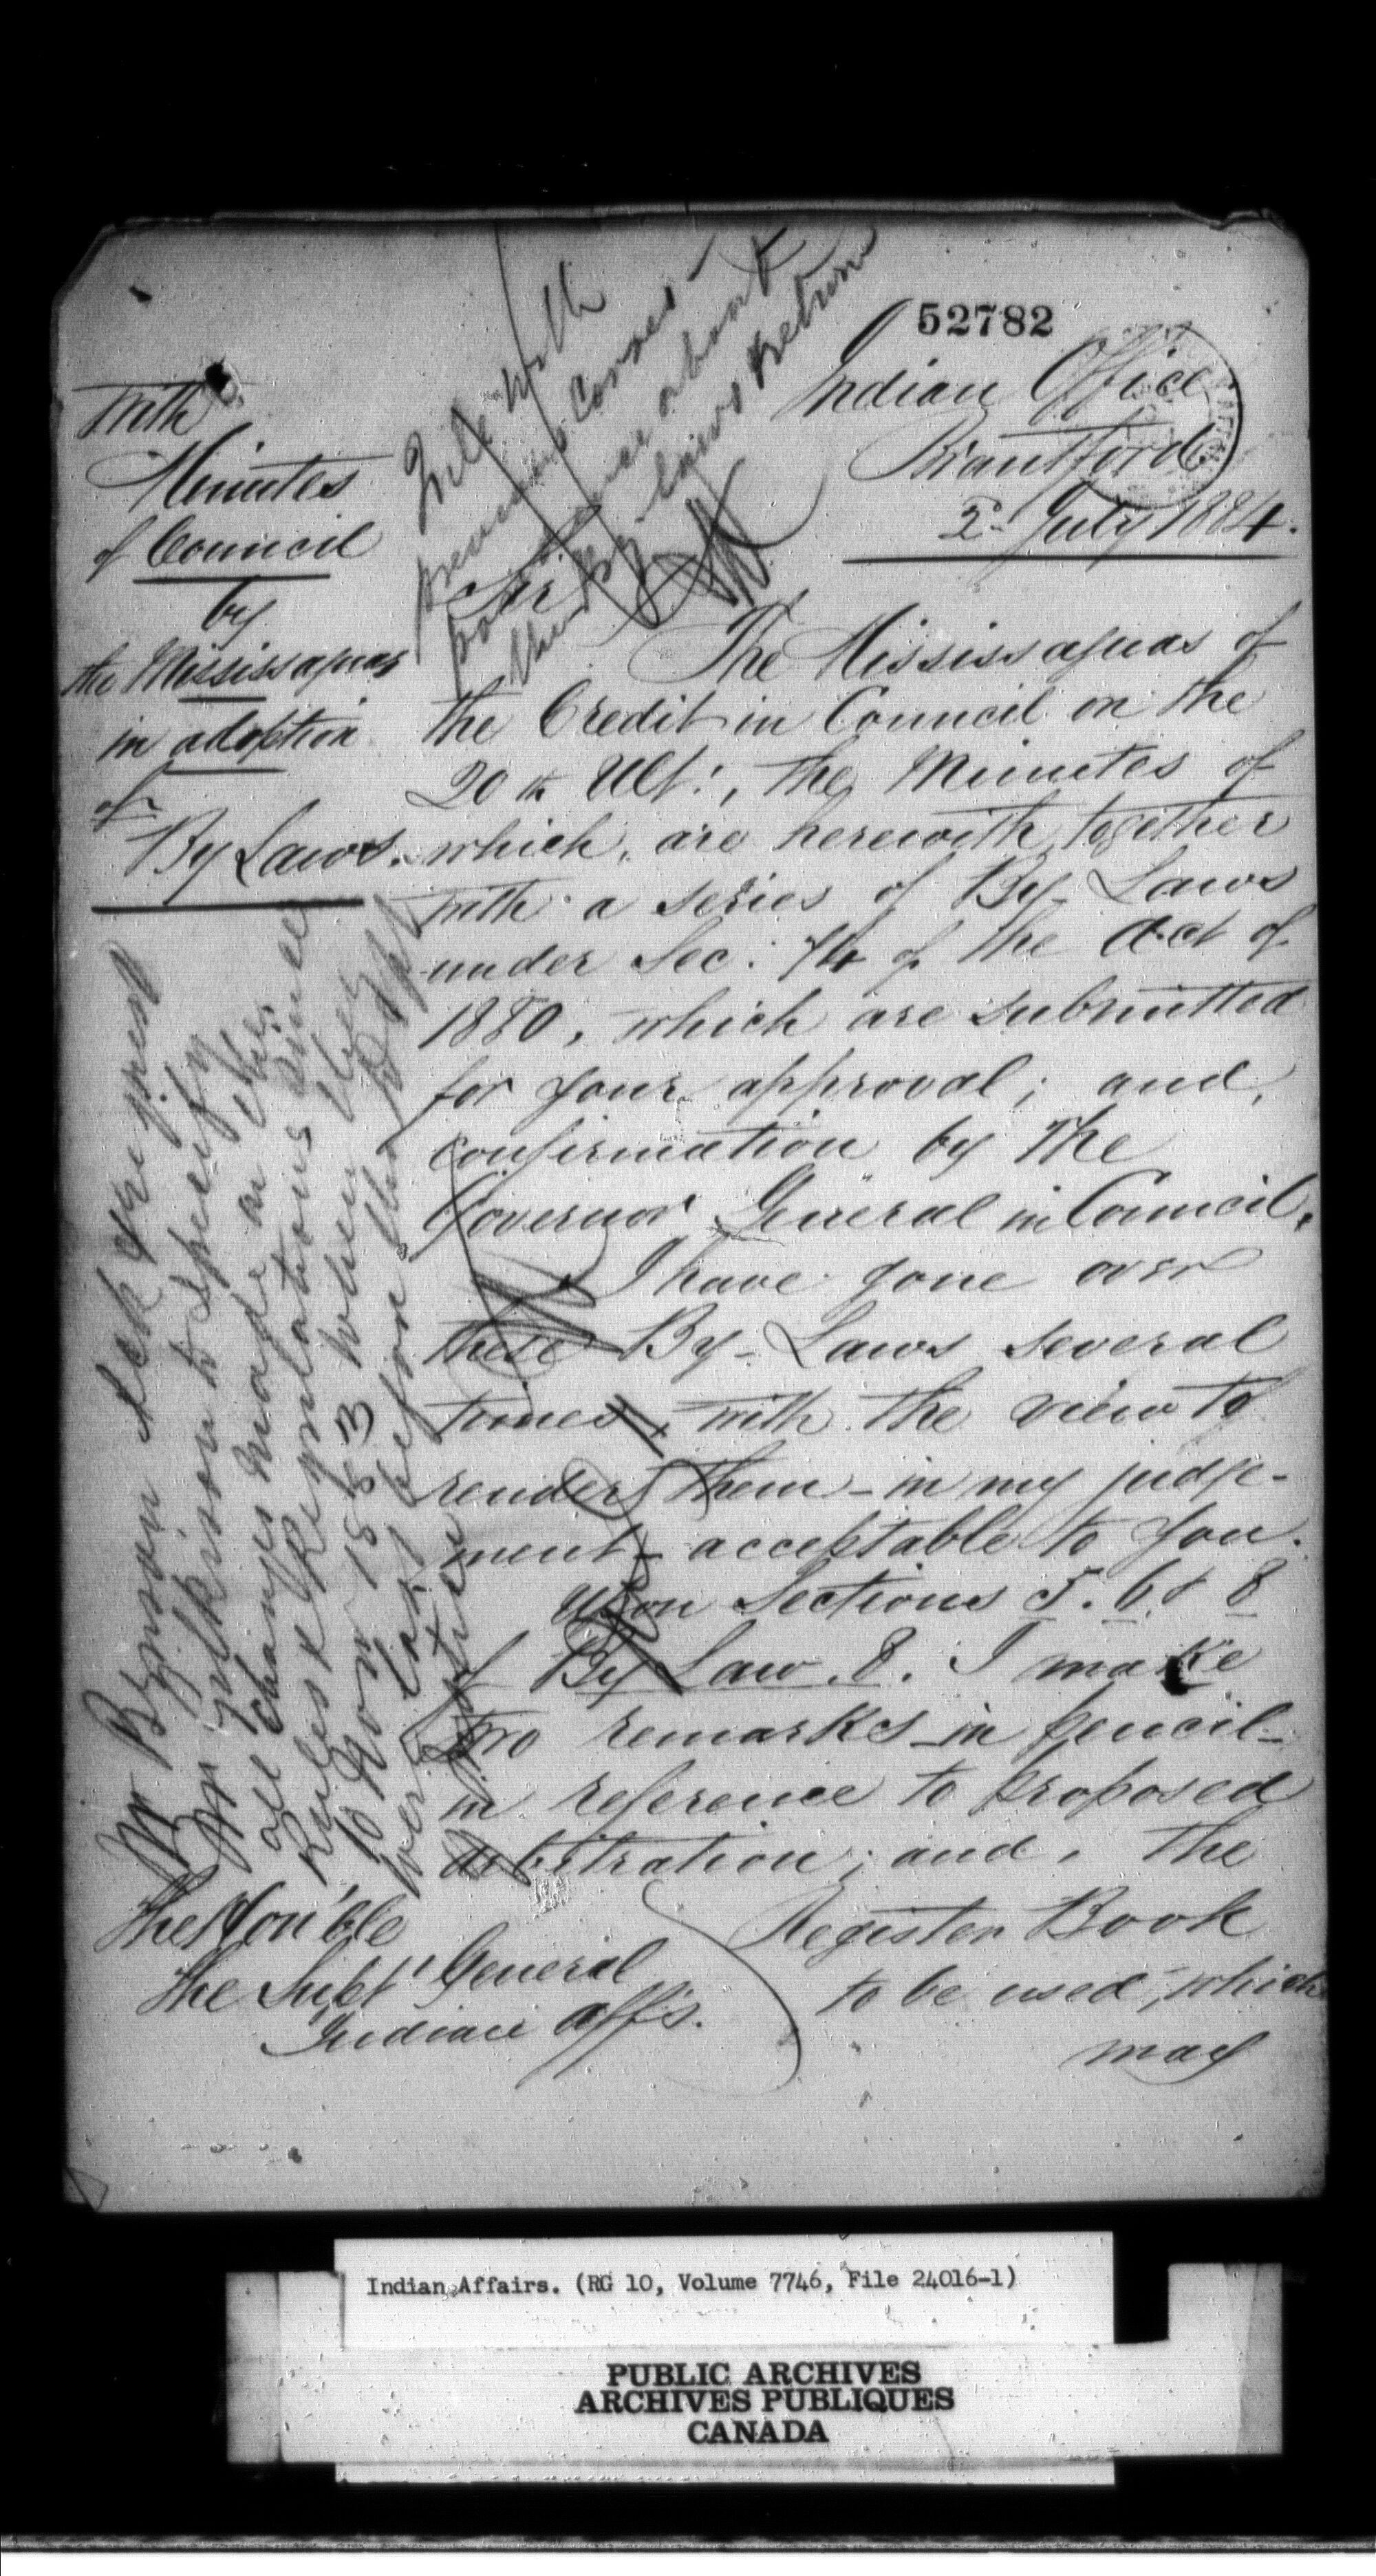 52782
Indian Office
Brantford
2d July 1884.
with
Minutes
of Council
by
the Mississaguas
in adoption
of
By Laws.
File with
previous Corres-
pondence about
these By-laws & return
Sir
The Mississaguas of
the Credit in Council on the
20th Ult:, the Minutes of
which, are herewith, together
with a series of By-Laws
under Sec: 74 of the Act of
1880, which are submitted
for your approval; and,
confirmation by the
Governor General in Council.
I have gone over
these By-Laws several
times, with the view to
render them - in my judge-
ment - acceptable to you.
Upon Sections 5. 6. & 8
of By Law. 8. I make
two remarks - in pencil -
in reference to proposed
arbitration; and, the
Register Book
to be used, which
may
The Hon'ble
The Supt General
Indian Affs.
Mr Benson Ack & request
Mr Gilkison to specify
all changes made in the
Rules & Regulations since
Nov 1883 when they
were last before the Dept
Indian Affairs. (RG 10, Volume 7746, File 24016-1)
PUBLIC ARCHIVES
ARCHIVES PUBLIQUES
CANADA